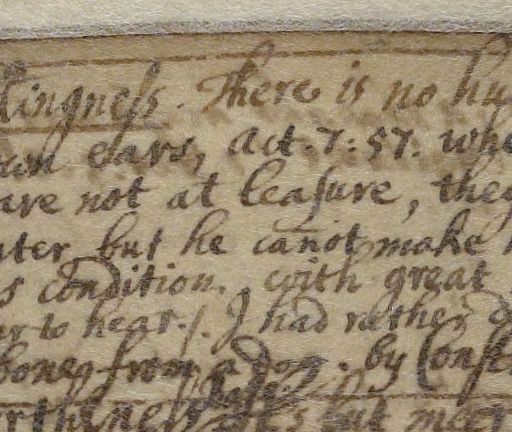 llingness. There is no hu
own ears, Act. 7: 57. whe
are not at leasure, they
nter but he can̄ot make h
s condition. with great
er to hear./. I had rather d
bones from a dog. by Const